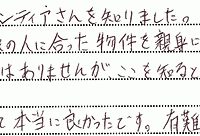 ンティアさんを知りました。
の人に合った物件を親身に
はありませんが、ここを知ると
て本当に良かったです。有難